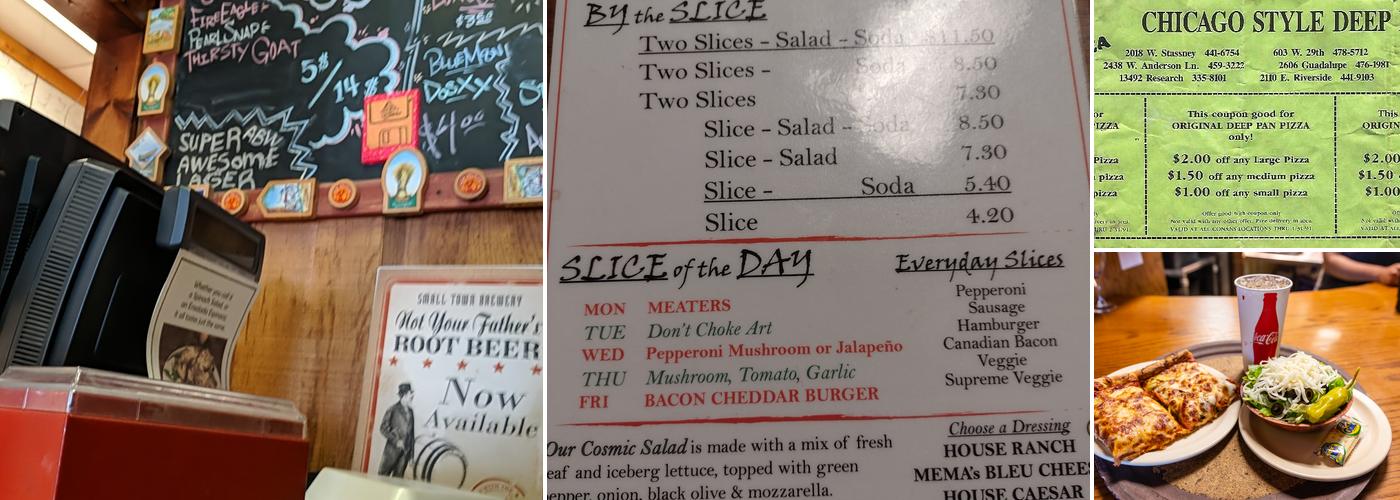 FIREEAGLE
PEARLSNAP
THIRSTY GOAT
5
14
$3.50
BLUEMOON
DOSXX
$4.00
SUPER
AWESOME
LAGER
Whether you call it
a Spinach Salad, or
it all tastes just the same.
SMALL TOWN BREWERY
Not Your Father's
ROOT BEER
Now
Available
BY the SLICE
Two Slices - Salad - Soda $11.50
Two Slices - 8.50
Two Slices 7.30
Slice - Salad - Soda 8.50
Slice - Salad 7.30
Slice - Soda 5.40
Slice 4.20
SLICE of the DAY
MON MEATERS
TUE Don't Choke Art
WED Pepperoni Mushroom or Jalapeño
THU Mushroom, Tomato, Garlic
FRI BACON CHEDDAR BURGER
Everyday Slices
Pepperoni
Sausage
Hamburger
Canadian Bacon
Veggie
Supreme Veggie
Our Cosmic Salad is made with a mix of fresh
eaf and iceberg lettuce, topped with green
epper, onion, black olive & mozzarella.
Choose a Dressing
HOUSE RANCH
MEMA's BLEU CHEES
HOUSE CAESAR
CHICAGO STYLE DEEP
2018 W. Stassney 441-6754
603 W. 29th 478-5712
2438 W. Anderson Ln. 459-3222
2606 Guadalupe 476-1981
13492 Research 335-8101
2110 E. Riverside 441-9103
This coupon good for
ORIGINAL DEEP PAN PIZZA
only!
$2.00 off any Large Pizza
$1.50 off any medium pizza
$1.00 off any small pizza
Offer good with coupon only
Not valid with any other offer. Free delivery in area.
VALID AT ALL CONANS LOCATIONS THRU
IZZA
Pizza
pizza
pizza
This
ORIGIN
$2.00
$1.50
$1.00
Coca-Cola